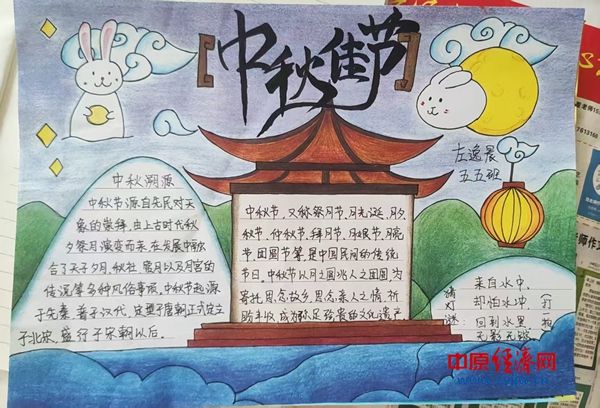 【中秋佳节】
左逸晨
五五班
中秋溯源
中秋节源自先民对天
象的崇拜,由上古时代秋
夕祭月演变而来.在发展中融
合了天子夕月,秋社
传说等多种风俗事项,中秋节起源
于先秦,普于汉代,定型于唐朝正式定立
于北宋,盛行于宋朝以后.
中秋节,又称祭月节,月光诞,月夕
秋节,仲秋节,拜月节,月娘节,月亮
节,团圆节等,是中国民间的传统
节日.中秋节以月之圆兆人之团圆,为
寄托思念故乡,思念亲人之情,祈
盼丰收,成为弥足珍贵的文化遗产
猜灯谜:
来自水中,
却怕水冲,
回到水里,
无影无踪
(打一物
中原经济网